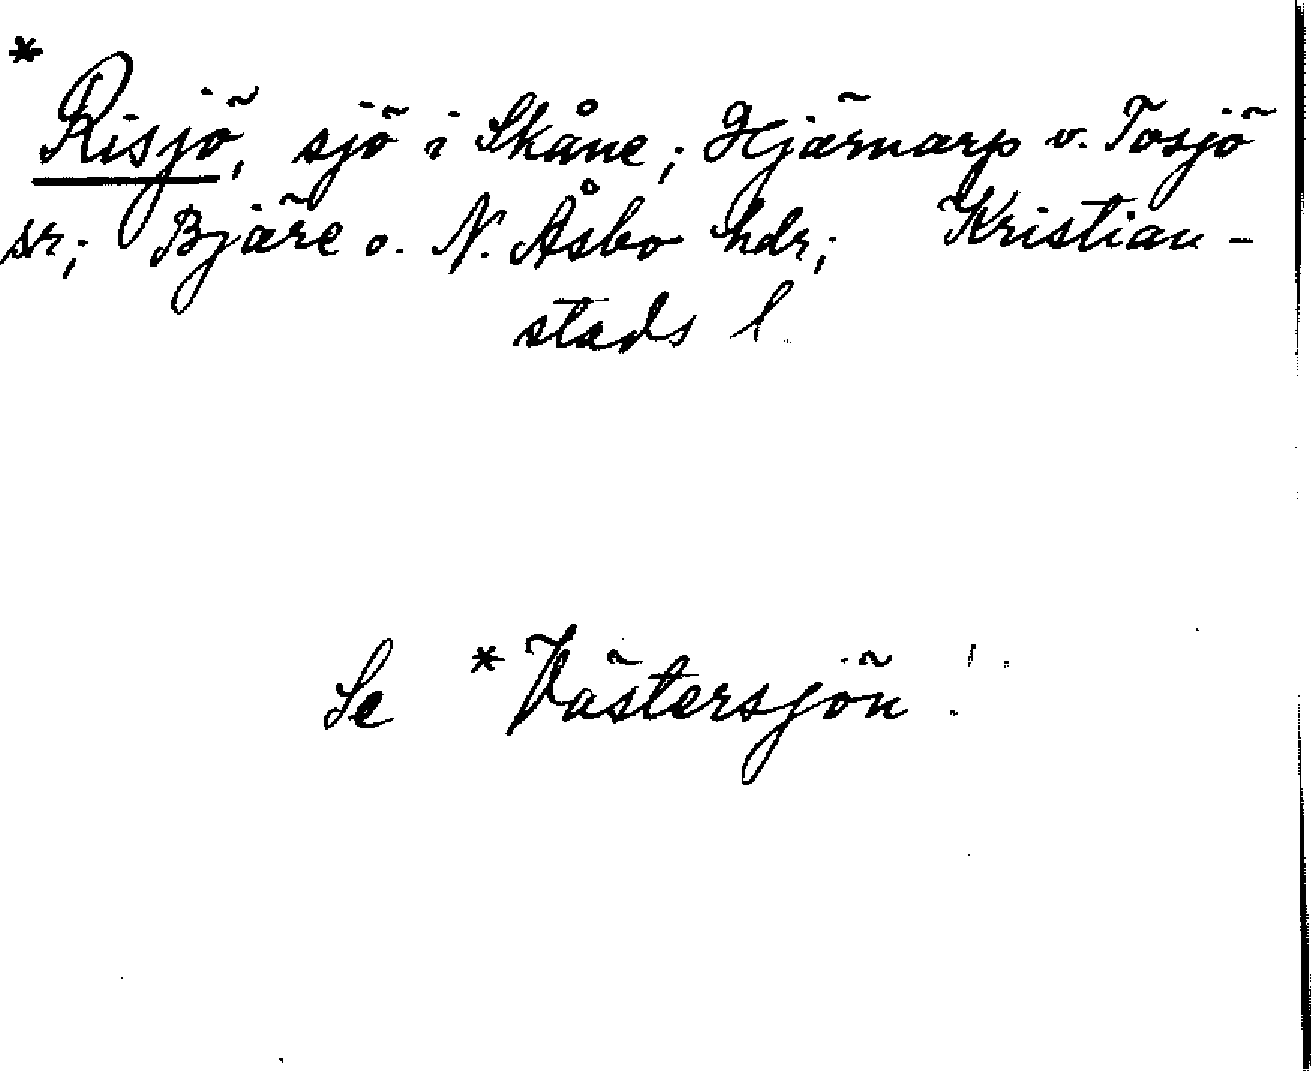 * Risjö, sjö i Skåne; Hjärnarp o. Tosjö
sr; Bjäre o. N. Åsbo hdr; Kristian-
stads l.
Se *Västersjön!